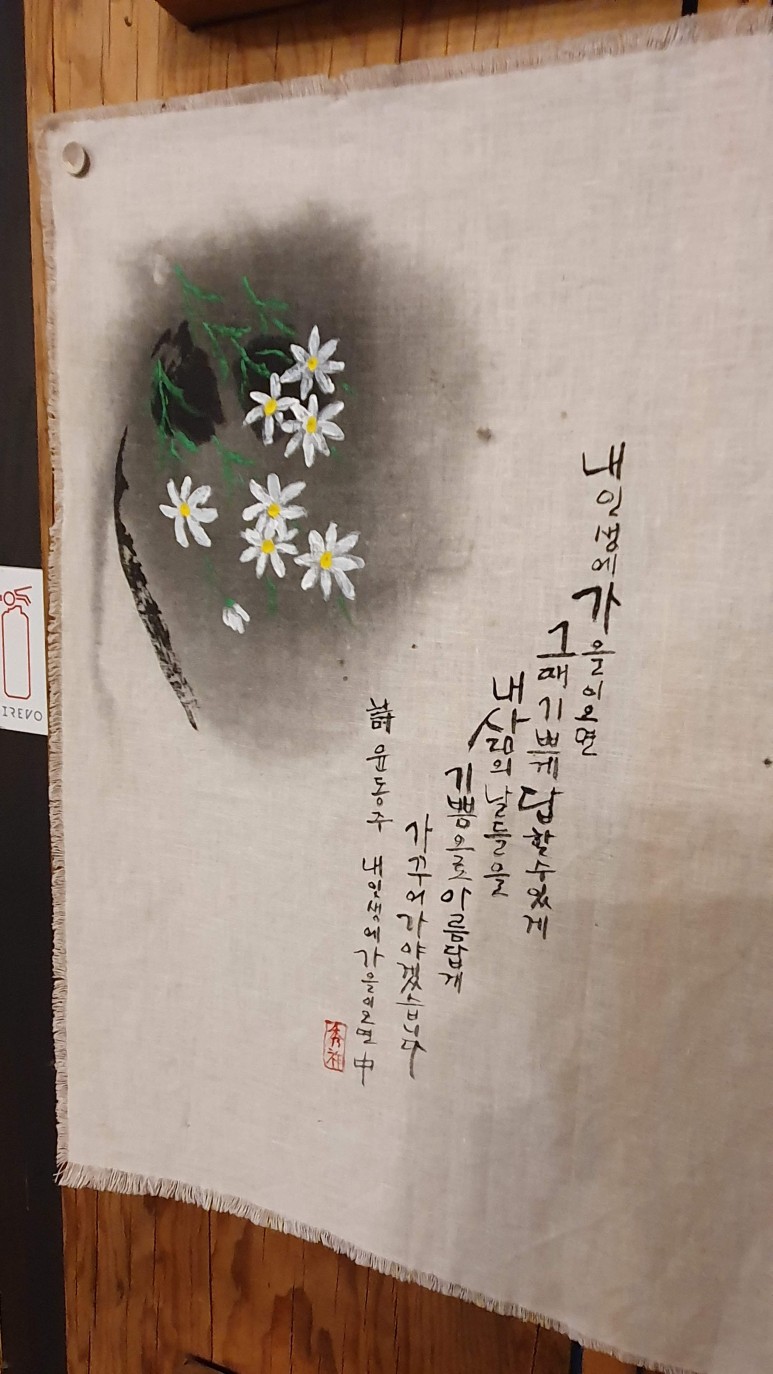 내 인생에 가을이 오면
그때 기쁘게 답할 수 있게
내 삶의 날들을
기쁨으로 아름답게
가꾸어 가야겠습니다
詩 윤동주 내 인생에 가을이 오면 中
IREVO